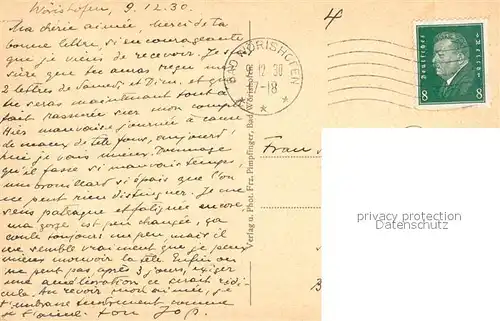 Wörishofen, 9.12.30.
Ma chérie aimée Merci de ta
bonne lettre, si encourageante
que je viens de recevoir. Je suis
sûre que tu auras reçu mes
2 lettres de Samedi et Dim. et que
tu seras maintenant tout à
fait rassurée sur mon compte
Hier mauvaise journée à cause
de maux de tête fous, aujourd'
hui je vais mieux. Dommage
qu'il fasse si mauvais temps,
un brouillard si épais que l'on
ne peut rien distinguer. Je me
sens patraque et fatiguée encore
ma gorge est peu changée, ça
coule toujours un peu, mais il
me semble vraiment que je peux
mieux mouvoir la tête. Enfin on
ne peut pas, après 3 jours, exiger
une amélioration ce serait ridi-
cule. Au revoir mon aimée, je
t'embrasse tendrement comme
je t'aime. ton
4
BAD WÖRISHOFEN
12 30
17-18
Deutsches Reich
8 8
Verlag u. Phot. Frz. Pimpfinger, Bad Wörishofen
Frau
privacy protection
Datenschutz